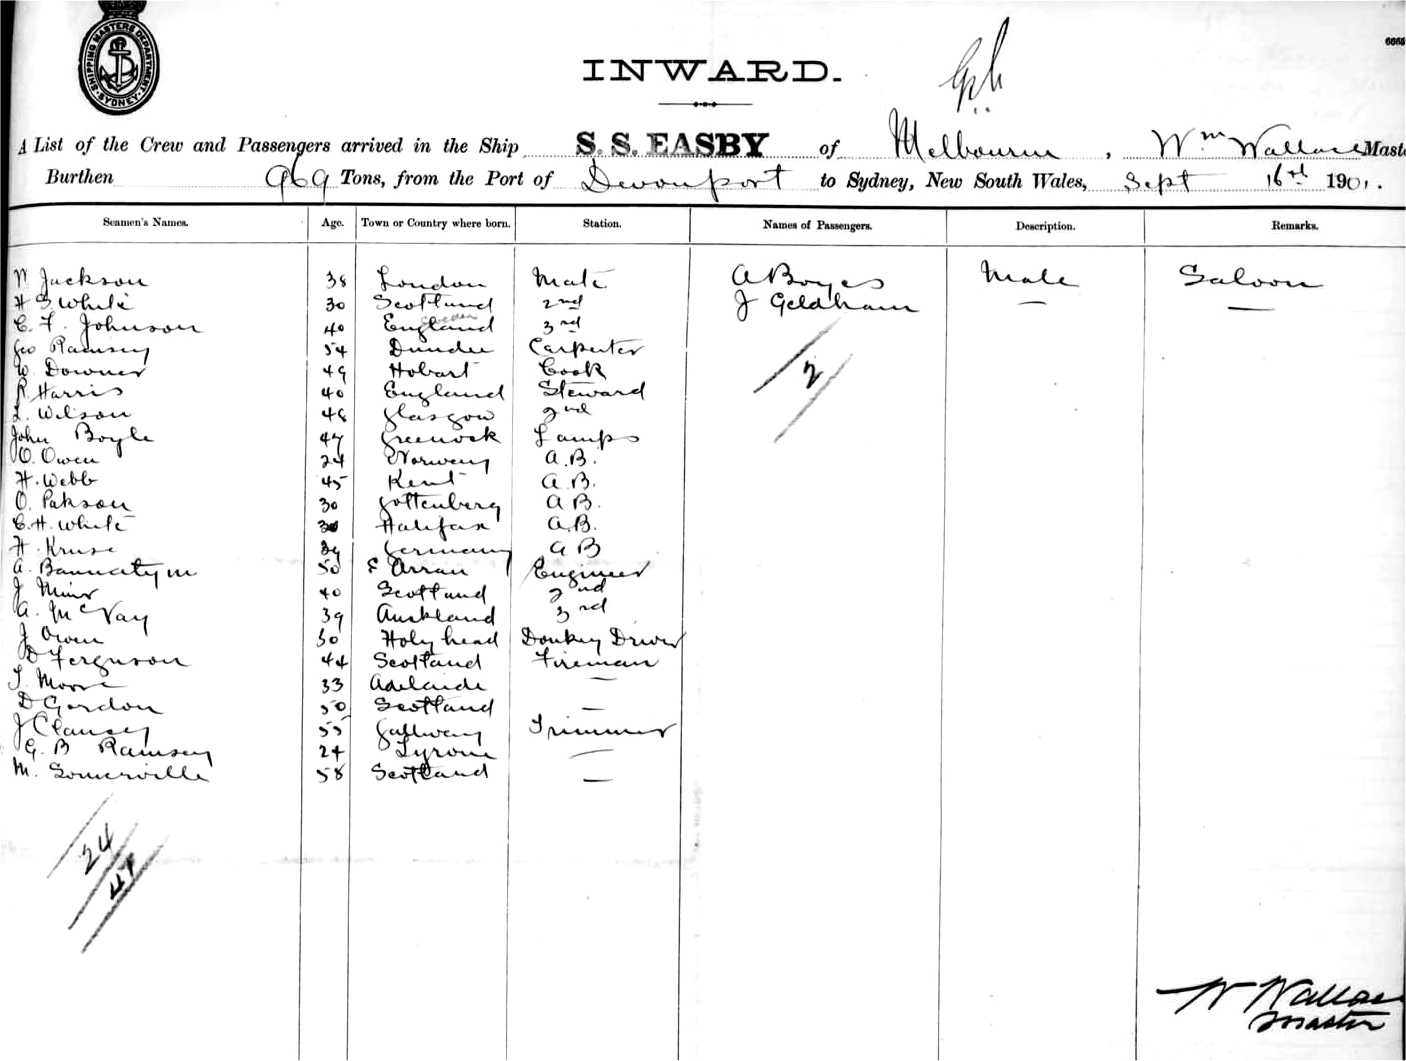 SHIPPING MASTERS DEPARTMENT
SYDNEY
6666
INWARD.
A List of the Crew and Passengers arrived in the Ship S. S. EASBY of Melbourne, Wm Wallace Maste
Burthen 969 Tons, from the Port of Devonport to Sydney, New South Wales, Sept 16th 1901.
Seamen's Names. Age. Town or Country where born. Station. Names of Passengers. Description. Remarks.
Jackson 38 London Mate A Boyes Male Saloon
H S White 30 Scotland 2nd J Geldham — —
C. F. Johnson 40 England Sweden 3rd
Geo Ramsey 54 Dundee Carpenter 2
W Downer 49 Hobart Cook
R. Harris 40 England Steward
L. Wilson 48 Glasgow 2nd
John Boyle 47 Greenock Lamps
O. Owen 24 Norway A.B.
H. Webb 45 Kent A.B.
O. 30 Gottenberg A B.
C. H. White Halifax A.B.
H. Kruse Germany A B
A. Bannatyne 50 Arran Engineer
J 40 Scotland 2nd
A. McVay 39 Auckland 3rd
J Owen 30 Holyhead Donkey Driver
D Ferguson 44 Scotland Fireman
T. Moore 33 Adelaide —
D Gordon 50 Scotland —
J Clancy 55 Gallway Trimmer
G. B Ramsey 24 Tyrone —
M. Somerville 58 Scotland —
24
W Wallace
Master